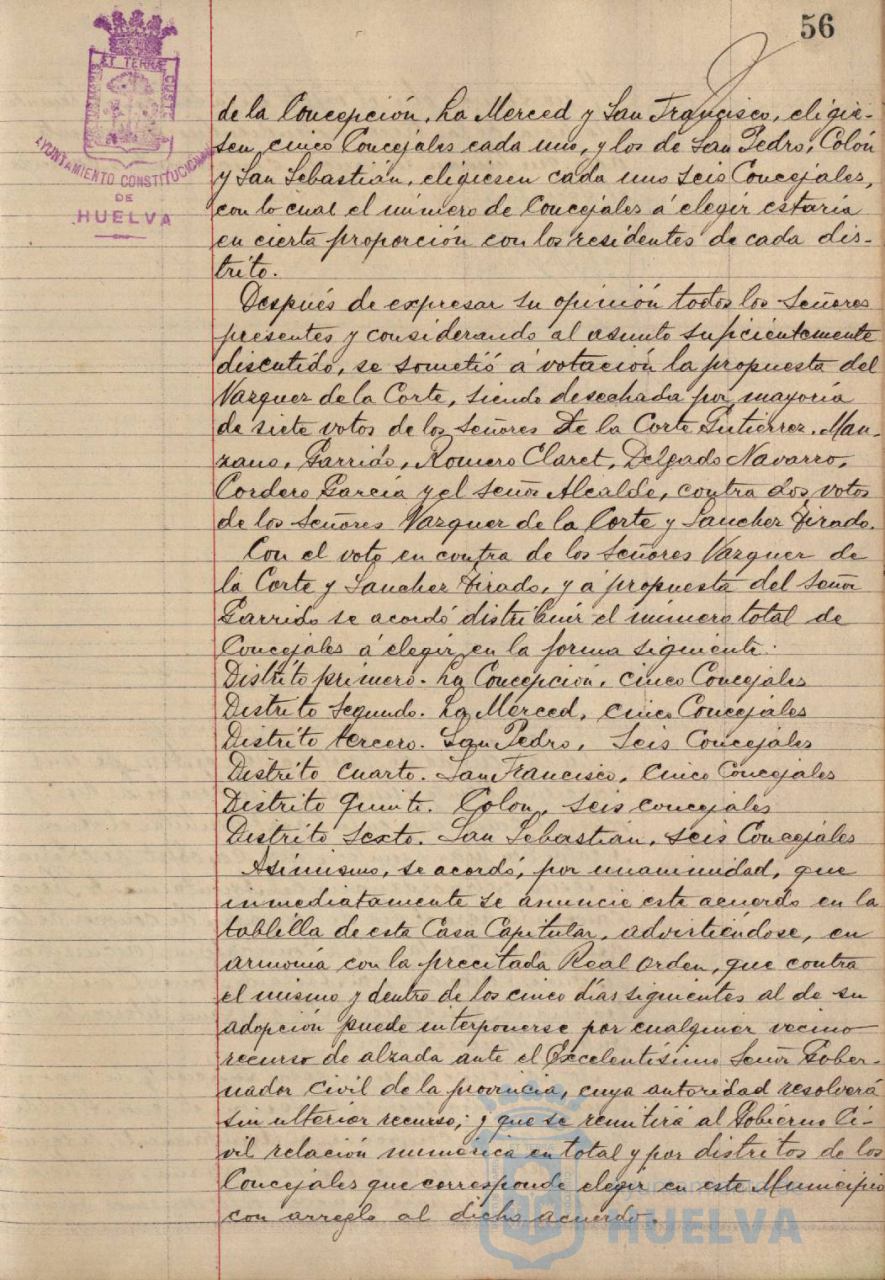 56
PORTUS MARIS ET TERRAE CUSTODIA
AYUNTAMIENTO CONSTITUCIONAL
DE
HUELVA
de la Concepción, La Merced y San Francisco, eligie-
sen cinco Concejales cada uno, y los de San Pedro, Colón
y San Sebastián, eligiesen cada uno seis Concejales,
con lo cual el número de Concejales á elegir estaría
en cierta proporción con los residentes de cada dis-
trito.
Después de expresar su opinión todos los Señores
presentes y considerando al asunto suficientemente
discutido, se sometió á votación la propuesta del
Vazquez de la Corte, siendo desechada por mayoría
de siete votos de los Señores De la Corte Gutierrez, Man-
zano, Garrido, Romero Claret, Delgado Navarro,
Cordero García y el Señor Alcalde, contra dos votos
de los Señores Vazquez de la Corte y Sanchez Tirado.
Con el voto en contra de los Señores Vazquez de
la Corte y Sanchez Tirado, y á propuesta del Señor
Garrido se acordó distribuir el número total de
Concejales á elegir en la forma siguiente:
Distrito primero. La Concepción, cinco Concejales
Distrito Segundo. La Merced, cinco Concejales
Distrito tercero. San Pedro, Seis Concejales
Distrito Cuarto. San Francisco, Cinco Concejales
Distrito Quinto. Colon, seis concejales
Distrito Sexto. San Sebastian, seis Concejales
Asimismo, se acordó, por unanimidad, que
inmediatamente se anuncie este acuerdo en la
tablilla de esta Casa Capitular, advirtiéndose, en
armonía con la precitada Real Orden, que contra
el mismo y dentro de los cinco días siguientes al de su
adopción puede interponerse por cualquier vecino
recurso de alzada ante el Excelentísimo Señor Gober-
nador Civil de la provincia, cuya autoridad resolverá
sin ulterior recurso; y que se remitirá al Gobierno Ci-
vil relación numérica en total y por distritos de los
Concejales que corresponde elegir en este Municipio
con arreglo al dicho acuerdo.
HUELVA